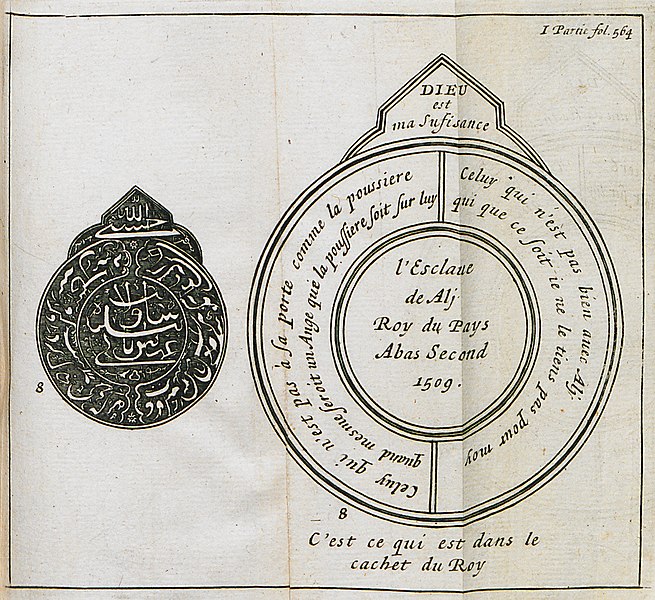 I Partie fol. 564
DIEU
est
ma Sufisance
Celuy qui n'est pas bien avec Alj
qui que ce soit ie ne le tiens pas pour moy
Celuy qui n'est pas à sa porte comme la poussiere
quand mesme seroit un Ange que la poussiere soit sur luy
l'Esclave
de Alj
Roy du Pays
Abas Second
1509.
8
8
C'est ce qui est dans le
cachet du Roy
حسبى الله